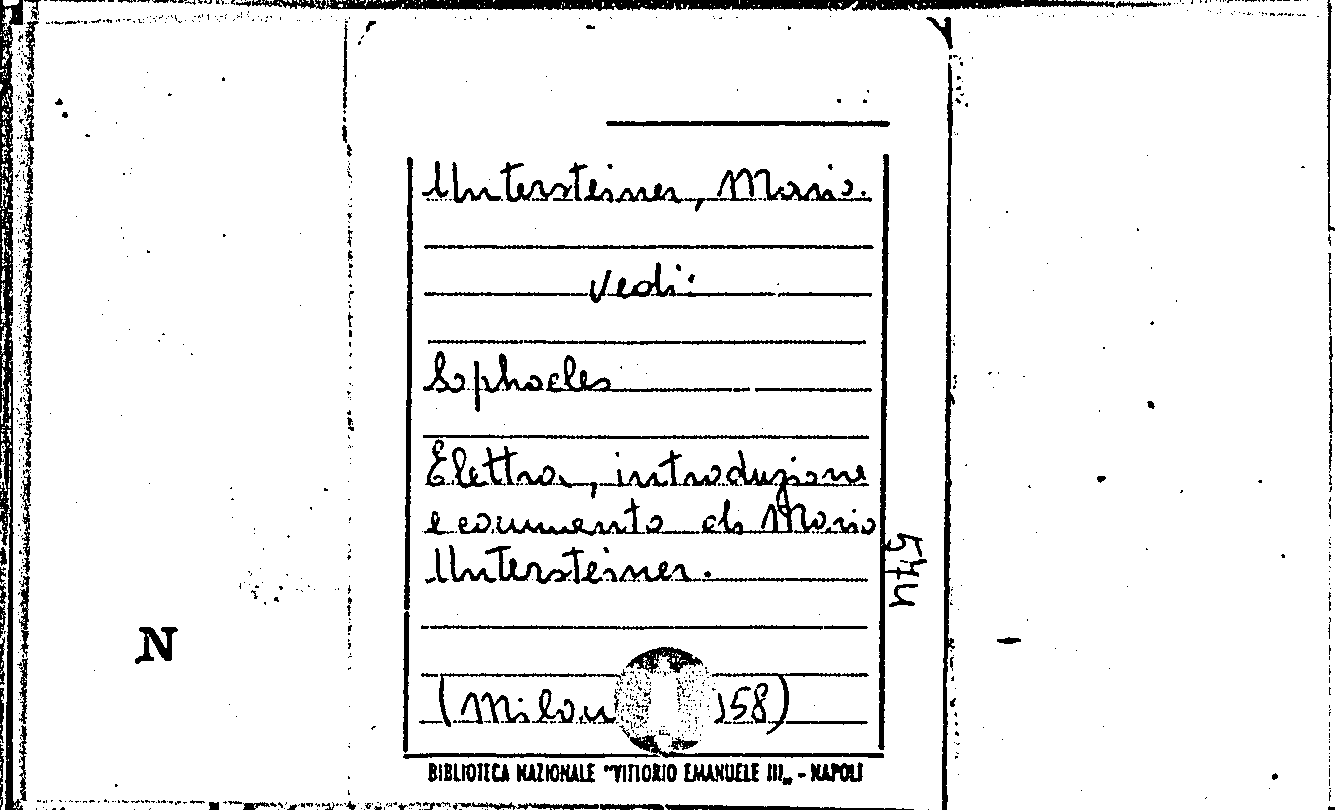 Untersteiner, Mario.
Vedi:
Sophocles
Elettra, introduzione
e commento di Mario
Untersteiner.
574
(Milan 958)
BIBLIOTECA NAZIONALE "VITTORIO EMANUELE III„ - NAPOLI
N